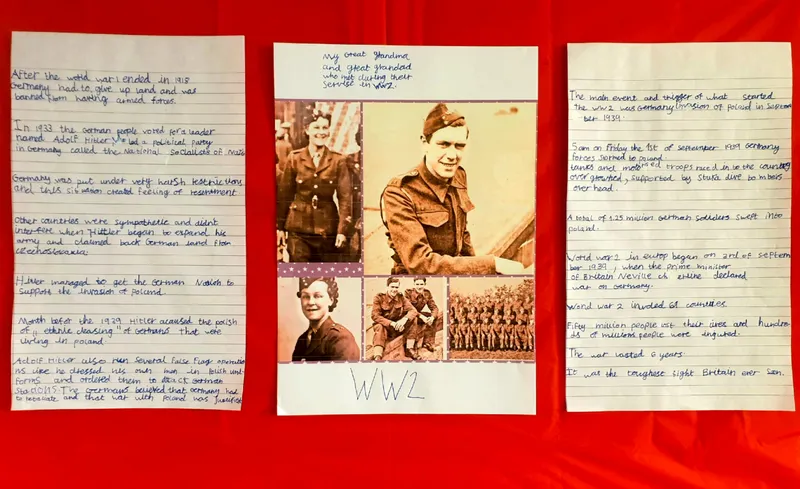 After the world war 1 ended in 1918
Germany had to give up land and was
banned from having armed forces.
In 1933 the German people voted for a leader
named Adolf Hitler who led a political party
in Germany called the National Socialists of Nazis
Germany was put under very harsh restrictions
and this situation created feeling of resentment
Other countries were sympathetic and didnt
interfire when Hittler began to expand his
army and claimed back German land from
czechoslovakia
Hitler managed to get the German Nation to
supports the invasion of poland.
Month befor the 1939 Hitler acaused the polish
of "ethnic cleasing" of Germans that were
living in poland.
Adolf Hitler also run several False flags operation
his own men in Polish uni-
forms and ordered them to German
stations. The Germans believed that Germany had
to and that war with poland was justifist
my great grandma
and great grandad
who met during their
service in WW2.
WW2
The main event and trigger of what started
the WW2 was Germany invasion of poland in septem
ber 1939.
5am on friday the 1st of september 1939 Germany
forces to poland
tanks and troops raced in to the country
over ground, supported by stuka dive bombers
over head.
A total of 1.25 million German soldiers swept into
poland.
World war 2 in europ began on 3rd of septem
ber 1939, when the prime minister
of Britain Neville declared
war on Germany.
World war 2 involed 61 countries
Fifty million people lost their lives and hundre
ds of millions people were injured.
The war lasted 6 years.
It was the toughest fight Britain ever seen.